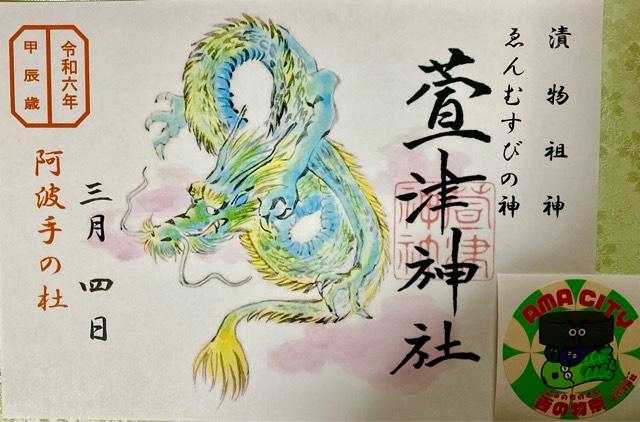 漬物祖神
ゑんむすびの神
萱津神社
萱津
神社
令和六年
甲辰歳
三月 四日
阿波手の杜
AMA CITY